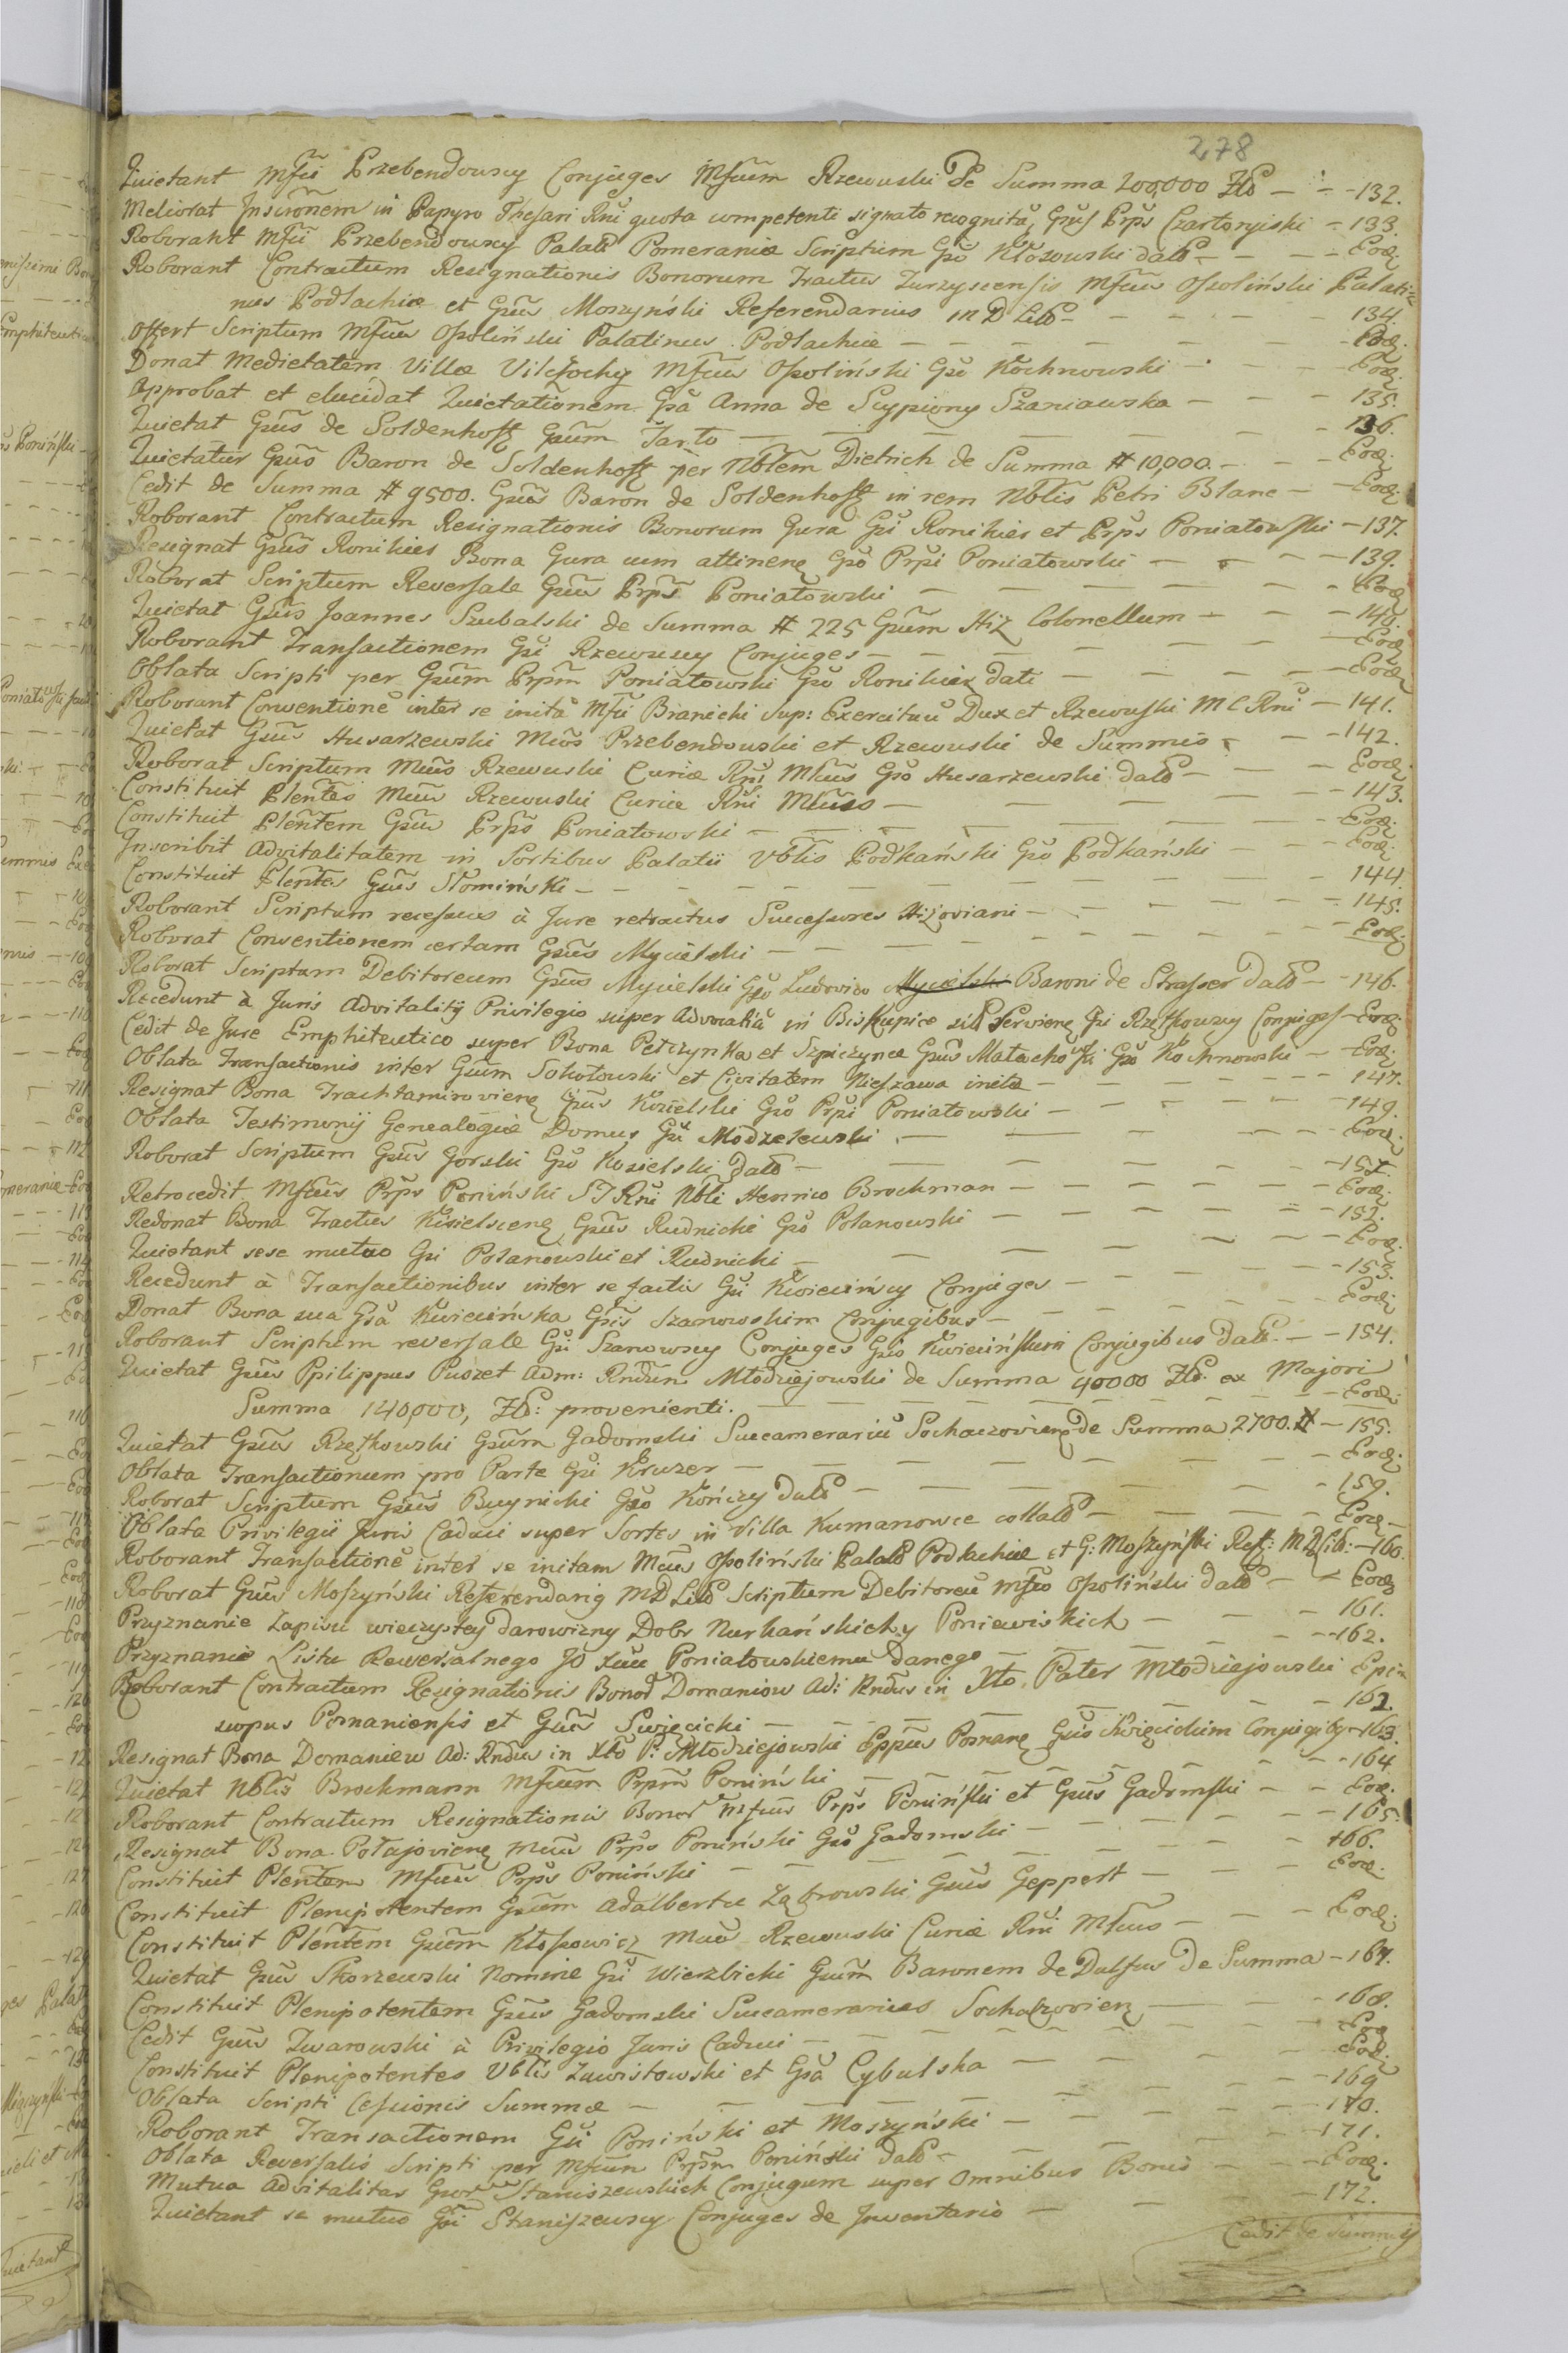 278
Quietant Mfči Przebendowscy Conjuges Mfčum Rzewuski De Summa 200,000 Złł — 132.
Meliorat Inscrõnem in Papyro Thesari Rñi quota competenti signato recognitã, Gñs Prps Czartoryiski — 133.
Roborant Mfči Przebendowscy Palatĩ Pomeraniæ Scriptum Gño Kłosowski datõ — — — Eod:
Roborant Contractum Resignationis Bonorum Tractus Turzyscensis Mfčus Ossoliński Palati=
nus Podlachiæ et Gñus Moszyński Referendarius M D Litõ — — — 134.
Offert Scriptum Mfčus Ossoliński Palatinus Podlachiæ — — — Eod:
Donat Medietatem Villæ Vilczochy Mfčus Ossoliński Gño Kochnowski — — — Eod:
Approbat et elucidat Quietationem Gña Anna de Scypiony Szaniawska — — — 135.
Quietat Gñus de Soldenhoff Gñum Jarto — — — 136.
Quietatur Gñus Baron de Soldenhoff per Nblem Dietrich de Summa # 10,000. — — Eod:
Cedit de Summa # 9500. Gñus Baron de Soldenhoff in rem Nblis Petri Blanc — Eod:
Roborant Contractum Resignationis Bonorum Gura Gñi Ronikier et Prps Poniatowski — 137.
Resignat Gñus Ronikier Bona Gura cum attinenę Gño Prpi Poniatowski — — — 139.
Roborat Scriptum Reversale Gñus Prps Poniatowski — — — Eod
Quietat Gñus Joannes Szubalski de Summa # 225 Gñum Hiż Colonellum — — — 140.
Roborant Transactionem Gñi Rzewuscy Conjuges — — — Eod
Oblata Scripti per Gñum Prpm Poniatowski Gño Ronikier dati — — — Eod
Roborant Conventionẽ inter se initã Mfči Branicki Sup: Exercituũ Dux et Rzewuski M C Rñi — 141.
Quietat Gñus Husarzewski Mčos Przebendowski et Rzewuski de Summis — — 142.
Roborat Scriptum Mčus Rzewuski Curiæ Rñi Mlčus Gño Husarzewski datõ — — Eod:
Constituit Plentes Mčus Rzewuski Curiæ Rñi Mlčus — — — 143.
Constituit Plentem Gñus Prps Poniatowski — — — Eod:
Inscribit Advitalitatem in Sortibus Palatii Vblis Podkański Gño Podkański — — — Eod:
Constituit Plentes Gñus Słomiński — — — 144.
Roborant Scriptum recessus à Jure retractus Successores Hiżoviani — — — 145.
Roborat Conventionem certam Gñus Mycielski — — — Eod:
Roborat Scriptum Debitoreum Gñus Mycielski Gño Ludovico Mycielski Baroni de Strasser datõ — 146.
Recedunt à Juris Advitality Privilegio super Advocatiã in Biskupice sitõ Servienę Gñi Rzętkowscy Conjuges — Eod:
Cedit de Jure Emphiteutico super Bona Petczynka et Szpiczynce Gñus Małachowski Gño Kochnowski — Eod:
Oblata Transactionis inter Gñum Sokołowski et Civitatem Nieszawa initæ — — — 147.
Resignat Bona Trachtamirovienę Gñus Kozielski Gño Prpi Poniatowski — — — 149.
Oblata Testimonij Genealogiæ Domus Gñi Modzelewski — — — Eod:
Roborat Scriptum Gñus Gorski Gño Kozielski Datõ — — — 151.
Retrocedit Mfčus Prps Poniński S T Rñi Nbli Henrico Brockman — — — Eod:
Redonat Bona Tractus Kisielscenę Gñus Rudnicki Gño Potanowski — — — 152.
Quietant sese mutuo Gñi Potanowski et Rudnicki — — — Eod:
Recedunt à Transactionibus inter se factis Gñi Kwiecińscy Conjuges — — — 153.
Donat Bona sua Gña Kwiecińska Gñis Szanowskim Conjugibus — — — Eod:
Roborant Scriptum reversale Gñi Szanowscy Conjuges Gñis Kwiecińskim Conjugibus datõ — — 154.
Quietat Gñus Ppilippus Puszet Adm: Rndum Młodziejowski de Summa 40000 Złł. ex Majori
Summa 140,000, Złł: provenienti. — — — Eod:
Quietat Gñus Rzętkowski Gñum Gadomski Succamerariũ Sochaczovienę de Summa 2700.# — 155.
Oblata Transactionum pro Parte Gñi Kruzer — — — Eod:
Roborat Scriptum Gñus Buynicki Gño Kończy datõ — — — 159.
Oblata Privilegii Juris Caduci super Sortes in Villa Kumanowce collatõ — — — Eod —
Roborant Transactionẽ inter se initam Mčus Ossoliński Palatõ Podlachiæ et G: Moszyński Ref: M D Lit: — 160.
Roborat Gñus Moszyński Referendarig M D Litõ Scriptum Debitoreũ Mfčo Ossoliński datõ — Eod
Przyznanie Zapisu wieczystey darowizny Dobr Nurkańskich y Poniewiskich — — — 161.
Przyznanie Listu Rewersalnego JO Xciu Poniatowskiemu danego — — — 162.
Roborant Contractum Resignationis Bonor Domaniow Ad: Rndus in Xto Pater Młodziejowski Epis
scopus Posnaniensis et Gñus Swięcicki — — — 162.
Resignat Bona Domaniew Ad: Rndus in Xto P: Młodziejowski Eppus Posnanę Gñis Swięcickim Conjugibg — 163.
Quietat Nblis Brockmann Mfčum Prpm Poniński — — — 164
Roborant Contractum Resignationis Bonor Mfčus Prps Poniński et Gñus Gadomski — — Eod.
Resignat Bona Połajovienę Mčus Prps Poniński Gño Gadomski — — — 165.
Constituit Plentem Mfčus Prps Poniński — — — 166.
Constituit Plenipotentem Gñum Adalbertu Zabrowski Gñus Geppert — — — Eod.
Constituit Plentem Gñum Kłossowicz Mčus Rzewuski Curiæ Rñi Mlčus — — — Eod:
Quietat Gñus Skorzewski Nomine Gñi Wierzbicki Gñum Baronem de Dulfus De Summa — 167.
Constituit Plenipotentem Gñus Gadomski Succamerarius Sochaczovienę — — — 168.
Cedit Gñus Zwarowski à Privilegio Juris Caduci — — — Eod
Constituit Plenipotentes Vblis Zawistowski et Gña Cybulska — — — Eod.
Oblata Scripti Cessionis Summæ — — — 169
Roborant Transactionem Gñi Poniński et Moszyński — — — 170.
Oblata Reversalis Scripti per Mfčum Prpm Poniński datõ — — — 171.
Mutua Advitalitas Gñor Staniszewskich Conjugum super Omnibus Bonis — — — Eod.
Quietant se mutuo Gñi Staniszewscy Conjuges de Inventario — — — 172.
Cedit de Summis